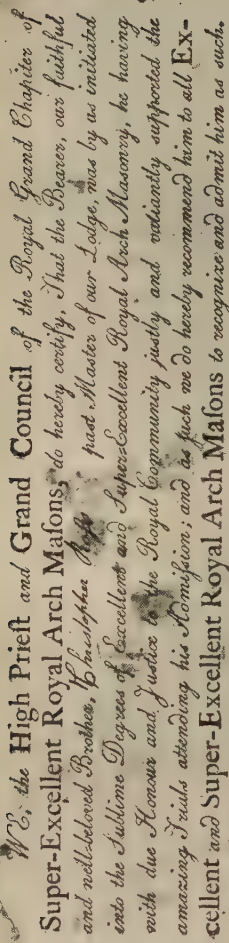 WE, the High Prieſt and Grand Council of the Royal Grand Chapiter of
Super-Excellent Royal Arch Maſons, do hereby certify, That the Bearer, our faithful
and well-beloved Brother, Chriſtopher past Maſter of our Lodge, was by us initiated
into the Sublime Degrees of Excellent and Super-Excellent Royal Arch Maſonry, he having
with due Honour and Juſtice to the Royal Community juſtly and valiantly supported the
amazing Trials attending his Admiſsion; and as ſuch we do hereby recommend him to all Ex-
cellent and Super-Excellent Royal Arch Maſons to recognize and admit him as such.